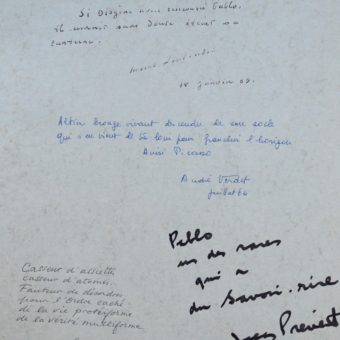 Si Diogène avait rencontré Pablo,
il aurait sans doute brisé sa
lanterne.
18 janvier
Altier bronze vivant descendu de son socle
qui s'en vient de loin pour franchir l'horizon
Ainsi Picasso
André Verdet
juillet 64
Pablo
un des rares
qui a
du savoir-rire
Jacques Prévert
Casseur d'assiettes
casseur d'atomes.
Fauteur de désordre
pour l'Ordre caché
de la vie protéiforme
de la vérité multiforme.